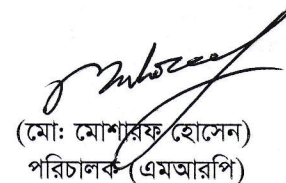 (মো: মোশাররফ হোসেন)
পরিচালক (এমআরপি)